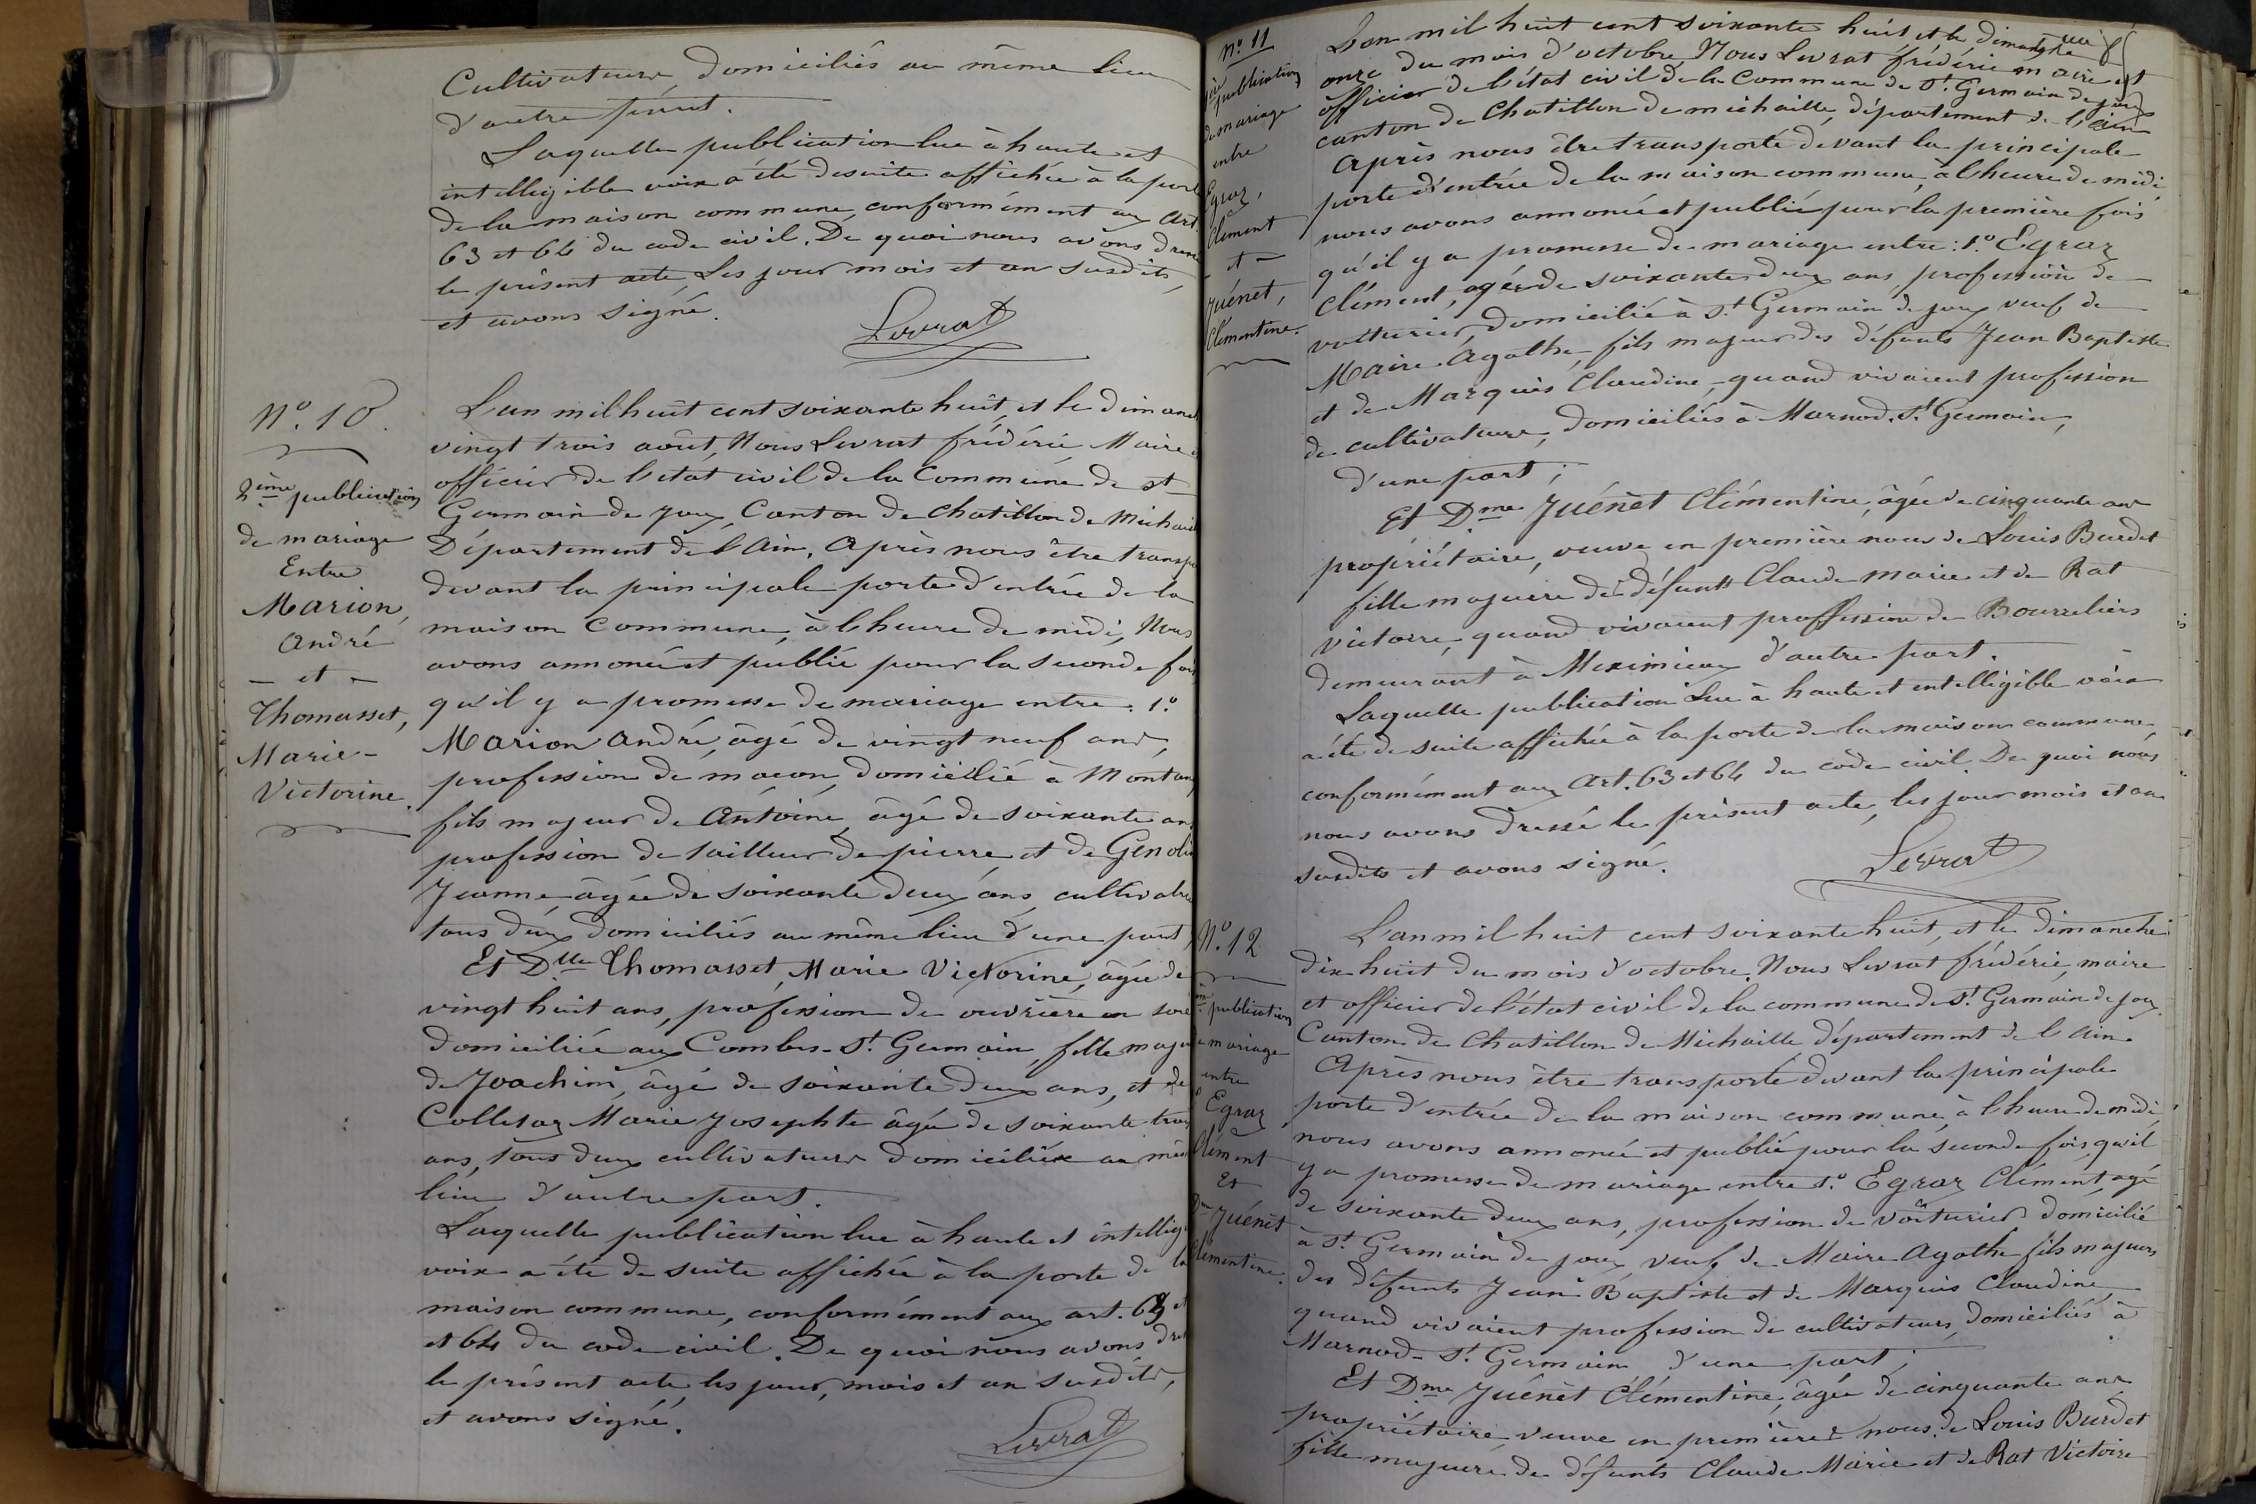 Cultivateurs, domiciliés au même lieu
d'autre part.
Laquelle publication lue à haute et
intelligible voix a été desuite affichée à la porte
de la maison commune, conformément aux Art.
63 et 64 du code civil. De quoi nous avons dressé
le présent acte, Les jour mois et an susdits,
et avons signé.
Levrat
N°. 10.
2ème publication
de mariage
Entre
Marion,
André
- et -
Thomasset,
Marie-
Victorine.
L'an mil huit cent soixante huit, et le dimanch
vingt trois août, Nous Levrat frédéric Maire
officier de l'état civil de la Commune de st
Germain de Joux, Canton de Chatillon de Michaill
Département de l'Ain. Après nous être transpo
devant la principale porte d'entrée de la
maison Commune, à l'heure de midi, Nous
avons annoncé et publié pour la seconde fois
qu'il y a promesse de mariage entre : 1°
Marion André, âgé de vingt neuf ans,
profession de maçon, domicilié à Montan
fils majeur de Antoine, âgé de soixante an
profession de tailleur de pierre, et de Genolin
Jeanne, âgée de soixante deux ans, cultivat
tous deux domiciliés au même lieu d'une part,
Et Dlle Thomasset, Marie Victorine, âgée de
vingt huit ans, profession de ouvrière en soie
domiciliée aux Combes-St. Germain fille maje
de Joachim, âgé de soixante deux ans, et de
Colletaz Marie Josephte âgée de soixante trois
ans, tous deux cultivateurs domiciliés au mêm
lieu d'autre part.
Laquelle publication lue à haute et intellig
voix a été de suite affichée à la porte de la
maison commune, conformément aux art. 63 et
et 64 du code civil. De quoi nous avons dre
le présent acte, les jour, mois et an susdits,
et avons signé.
Levrat
N°. 11
1ère publication
de mariage
entre
Egraz,
Clément
- et -
Juénet,
Clémentine.
L'an mil huit cent soixante huit et le dimanche
onze du mois d'octobre, Nous Levrat frédéric maire et
officier de l'état civil de la Commune de St. Germain de joux
canton de Chatillon de michaille, département de l'ain
Après nous être transporté devant la principale
porte d'entrée de la maison commune, à l'heure de midi,
nous avons annoncé et publié pour la première fois
qu'il y a promesse de mariage entre : 1.° Egraz
Clément, âgé de soixante deux ans, profession de
voiturier, domicilié à St. Germain de joux veuf de
Maire Agathe, fils majeur des défunts Jean Baptiste
et de Marquis Claudine, quand vivaient profession
de cultivateurs, domiciliés à Marnod. St. Germain,
d'une part ;
Et Dme Juénet Clémentine, âgée de cinquante ans
propriétaire, veuve en première nous de Louis Burdet
fille majeure de défunts Claude Marie et de Rat
Victoire, quand vivaient proffession de Bourreliers
demeurant à Meximieux d'autre part.
Laquelle publication Lue à haute et intelligible voix
a été de suite affichée à la porte de la maison commune
conformément aux Art. 63 et 64 du code civil. De quoi nous
nous avons dressé le présent acte, les jour mois et an
susdits et avons signé.
Levrat
N°. 12
publication
de mariage
entre
Egraz
Clément
Et
Dme Juénet
Clémentine.
L'an mil huit cent soixante huit, et le dimanche
dix huit du mois d'octobre. Nous Levrat frédéric, maire
et officier de l'état civil de la commune de St. Germain de joux
Canton de Chatillon de Michaille département de l'Ain.
Après nous être transporté devant la principale
porte d'entrée de la maison commune, à l'heure de midi,
nous avons annoncé et publié pour la seconde fois, qu'il
y a promesse de mariage entre 1.° Egraz Clément, agé
de soixante deux ans, profession de voiturier domicilié
à St. Germain de joux, veuf de Maire Agathe fils majeur
des défunts Jean Baptiste et de Marquis Claudine,
quand vivaient profession de cultivateurs, domiciliés à
Marnod-St. Germain, d'une part ;
Et Dme Juénet Clémentine, âgée de cinquante ans
propriétaire, veuve en première nous de Louis Burdet
fille majeure de défunts Claude Marie et de Rat Victoire